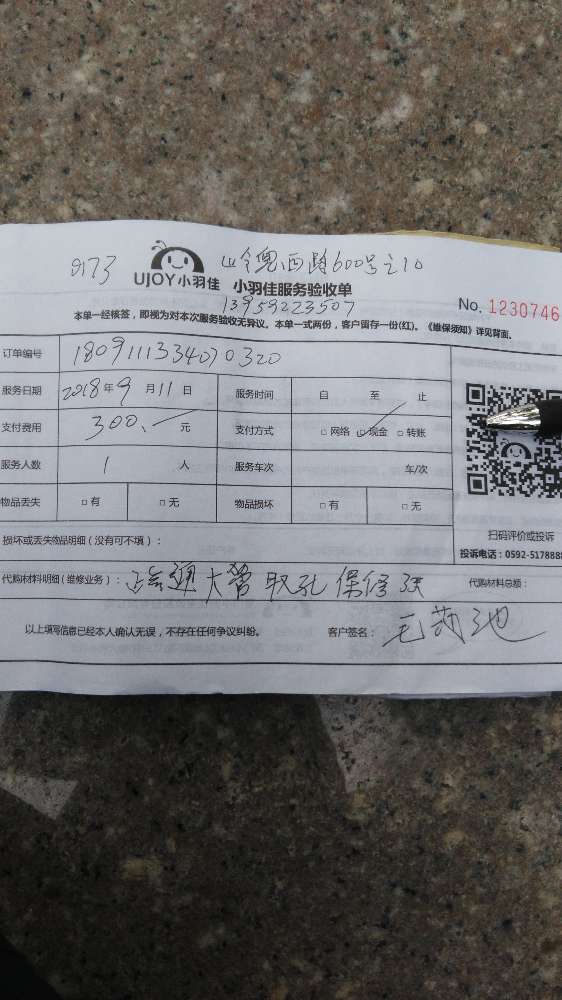 9173
西路600号之10
UJOY小羽佳 小羽佳服务验收单
13959223507
No. 1230746
本单一经核签，即视为对本次服务验收无异议。本单一式两份，客户留存一份(红)。《维保须知》详见背面。
订单编号 1809111334070320
服务日期 2018年9月11日 服务时间 自 至 止
支付费用 300.一 元 支付方式 □网络 ☑现金 □转账
服务人数 1 人 服务车次 车/次
物品丢失 □有 □无 物品损坏 □有 □无
扫码评价或投诉
损坏或丢失物品明细（没有可不填）：
投诉电话：0592-517888
代购材料明细(维修业务)： 通大管 取孔 保修 代购材料总额：
以上填写信息已经本人确认无误，不存在任何争议纠纷。 客户签名： 毛 池